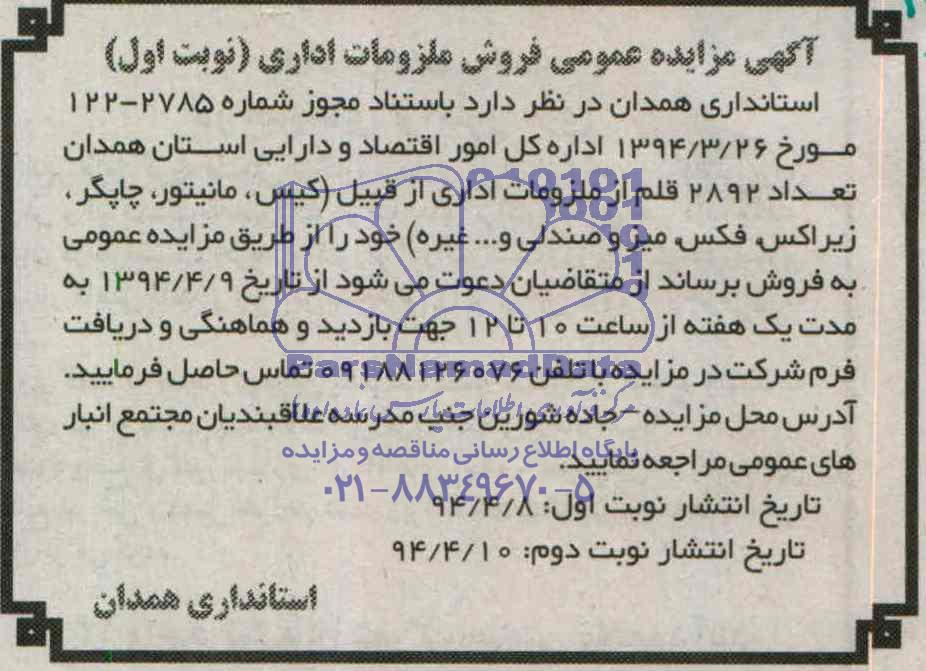 آگهی مزایده عمومی فروش ملزومات اداری (نوبت اول)
استانداری همدان در نظر دارد باستناد مجوز شماره ۲۷۸۵-۱۲۲
مورخ ۱۳۹۴/۳/۲۶ اداره کل امور اقتصاد و دارایی استان همدان
تعداد ۲۸۹۲ قلم از ملزومات اداری از قبیل (کیس، مانیتور، چاپگر،
زیراکس، فکس، میز و صندلی و... غیره) خود را از طریق مزایده عمومی
به فروش برساند از متقاضیان دعوت می شود از تاریخ ۱۳۹۴/۴/۹ به
مدت یک هفته از ساعت ۱۰ تا ۱۲ جهت بازدید و هماهنگی و دریافت
فرم شرکت در مزایده با تلفن ۰۹۱۸۸۱۲۶۰۷۶ تماس حاصل فرمایید.
ParsNamadData
آدرس محل مزایده - جاده شورین جنب مدرسه علاقبندیان مجتمع انبار
های عمومی مراجعه نمایید.
پایگاه اطلاع رسانی مناقصه و مزایده
۰۲۱-۸۸۳۴۹۶۷۰-۵
تاریخ انتشار نوبت اول: ۹۴/۴/۸
تاریخ انتشار نوبت دوم: ۹۴/۴/۱۰
استانداری همدان